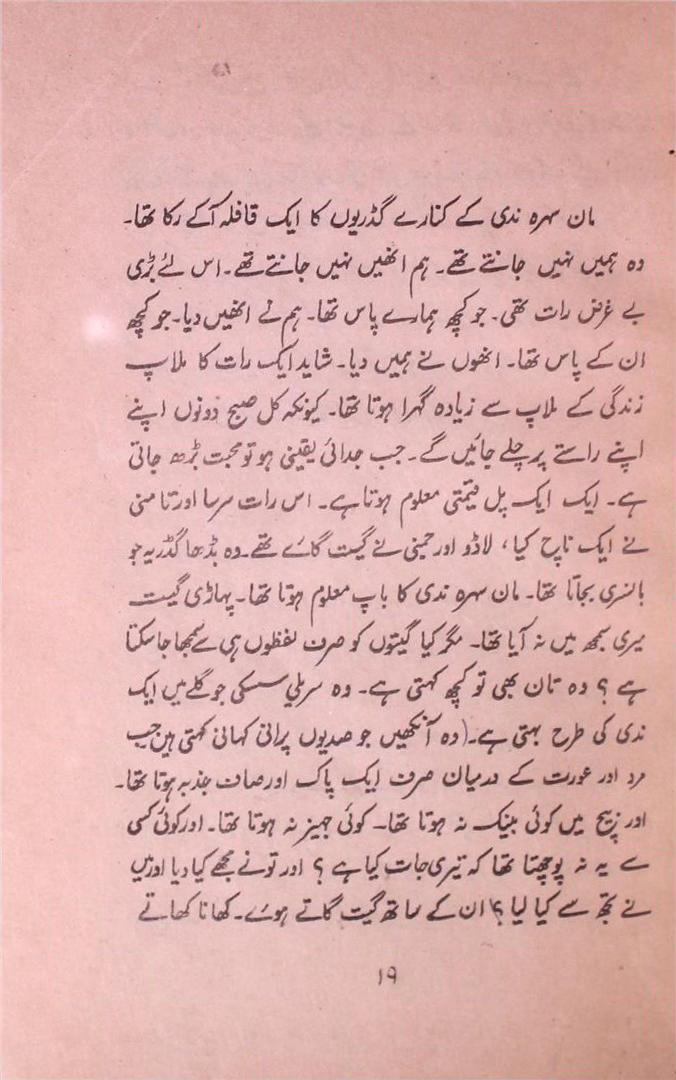 مان سہرہ ندی کے کنارے گڈریوں کا ایک قافلہ آکے رکا تھا۔
وہ ہمیں نہیں جانتے تھے۔ ہم انھیں نہیں جانتے تھے۔ اس لئے بڑی
بے غرض رات تھی۔ جو کچھ ہمارے پاس تھا۔ ہم نے انھیں دیا۔ جو کچھ
ان کے پاس تھا۔ انھوں نے ہمیں دیا۔ شاید ایک رات کا ملاپ
زندگی کے ملاپ سے زیادہ گہرا ہوتا تھا۔ کیونکہ کل صبح دونوں اپنے
اپنے راستے پر چلے جائیں گے۔ جب جدائی یقینی ہو تو محبت بڑھ جاتی
ہے۔ ایک ایک پل قیمتی معلوم ہوتا ہے۔ اس رات سرسا اور تامنی
نے ایک ناچ کیا، لاڈو اور جمنی نے گیت گائے تھے۔ وہ بڈھا گڈریہ جو
بانسری بجاتا تھا۔ مان سہرہ ندی کا باپ معلوم ہوتا تھا۔ پہاڑی گیت
میری سمجھ میں نہ آیا تھا۔ مگر کیا گیتوں کو صرف لفظوں ہی سے سمجھا جاسکتا
ہے؟ وہ تان بھی تو کچھ کہتی ہے۔ وہ سریلی سسکی جو گلے میں ایک
ندی کی طرح بہتی ہے۔ (وہ آنکھیں جو صدیوں پرانی کہانی کہتی ہیں جب
مرد اور عورت کے درمیان صرف ایک پاک اور صاف جذبہ ہوتا تھا۔
اور بیچ میں کوئی بینک نہ ہوتا تھا۔ کوئی جہیز نہ ہوتا تھا۔ اور کوئی کسی
سے یہ نہ پوچھتا تھا کہ تیری جات کیا ہے؟ اور تونے مجھے کیا دیا اور میں
نے تجھ سے کیا لیا؟) ان کے ساتھ گیت گاتے ہوئے۔ کھانا کھاتے
۱۹